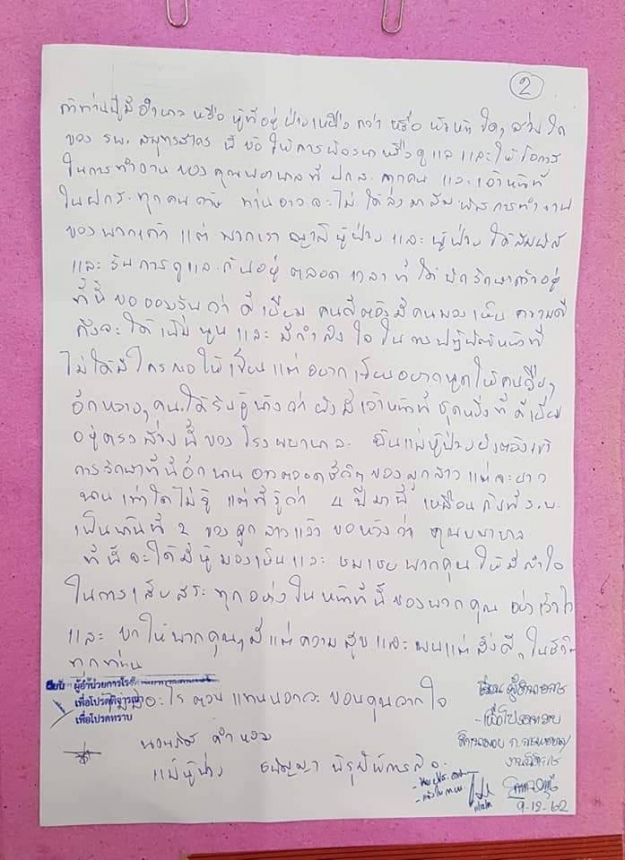 2
ถ้าท่านผู้มีอำนาจ หรือ ผู้ที่อยู่ฝ่ายเหนือกว่า หรือ หัวหน้าใดๆ ส่วนใด
ของ รพ. สมุทรสาคร นี้ ขอให้การพิจารณาหรือดูแล และให้โอกาส
ในการทำงาน ของคุณพยาบาลที่ ปกส. ทุกคน และเจ้าหน้าที่
ใน ปกส. ทุกคน ท่านอาจจะไม่ได้ลงมาสัมผัสการทำงาน
ของพวกเค้า แต่ พวกเราญาติผู้ป่วย และ ผู้ป่วย ได้สัมผัส
และ รับการดูแล กันอยู่ ตลอด เวลา ที่ ได้ รักษาตัวอยู่
ที่นี้ ขอยอมรับว่า ดีเยี่ยม คนดีต้องมีคนมองเห็น ความดี
ถึงจะได้เพิ่มพูน และ มีกำลังใจ ในการปฏิบัติหน้าที่
ไม่ได้มีใครขอให้เขียน แต่อยากเขียนอยากพูดให้คนอื่นๆ
อีกหลายๆ คน ได้รับรู้บ้างว่า ยังมีเจ้าหน้าที่ชุดหนึ่งที่ดีเยี่ยม
อยู่ตรงส่วนนี้ของโรงพยาบาล ฉันแม่ผู้ป่วยยังต้องเข้า
การรักษาที่นี้อีกนาน อาจตลอดชีวิตของลูกสาว แต่จะยาว
นานเท่าใดไม่รู้ แต่ที่รู้ว่า 4 ปีมานี้ เหมือนกับที่ ร.พ.
เป็นบ้านที่ 2 ของลูกสาวแล้ว ขอหวังว่า คุณพยาบาล
ที่นี้ จะได้มีผู้มองเห็นและ ชมเชย พวกคุณ ให้มีกำลังใจ
ในการเสียสระ ทุกอย่างในหน้าที่นี้ของพวกคุณ
และ ขอให้พวกคุณๆ มีแต่ความสุขและพบแต่สิ่งดีๆ ในชีวิต
ทุกท่าน
เรียน ผู้อำนวยการโรงพยาบาล
เพื่อโปรดพิจารณา
เพื่อโปรดทราบ
ตอบแทนนอกจะ ขอบคุณจากใจ
แม่ผู้ป่วย
9-12-62